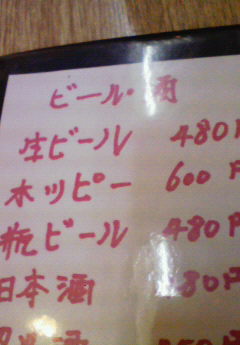 ビール・酒
生ビール 480円
ホッピー 600円
瓶ビール 480円
日本酒 80円
酒 350円